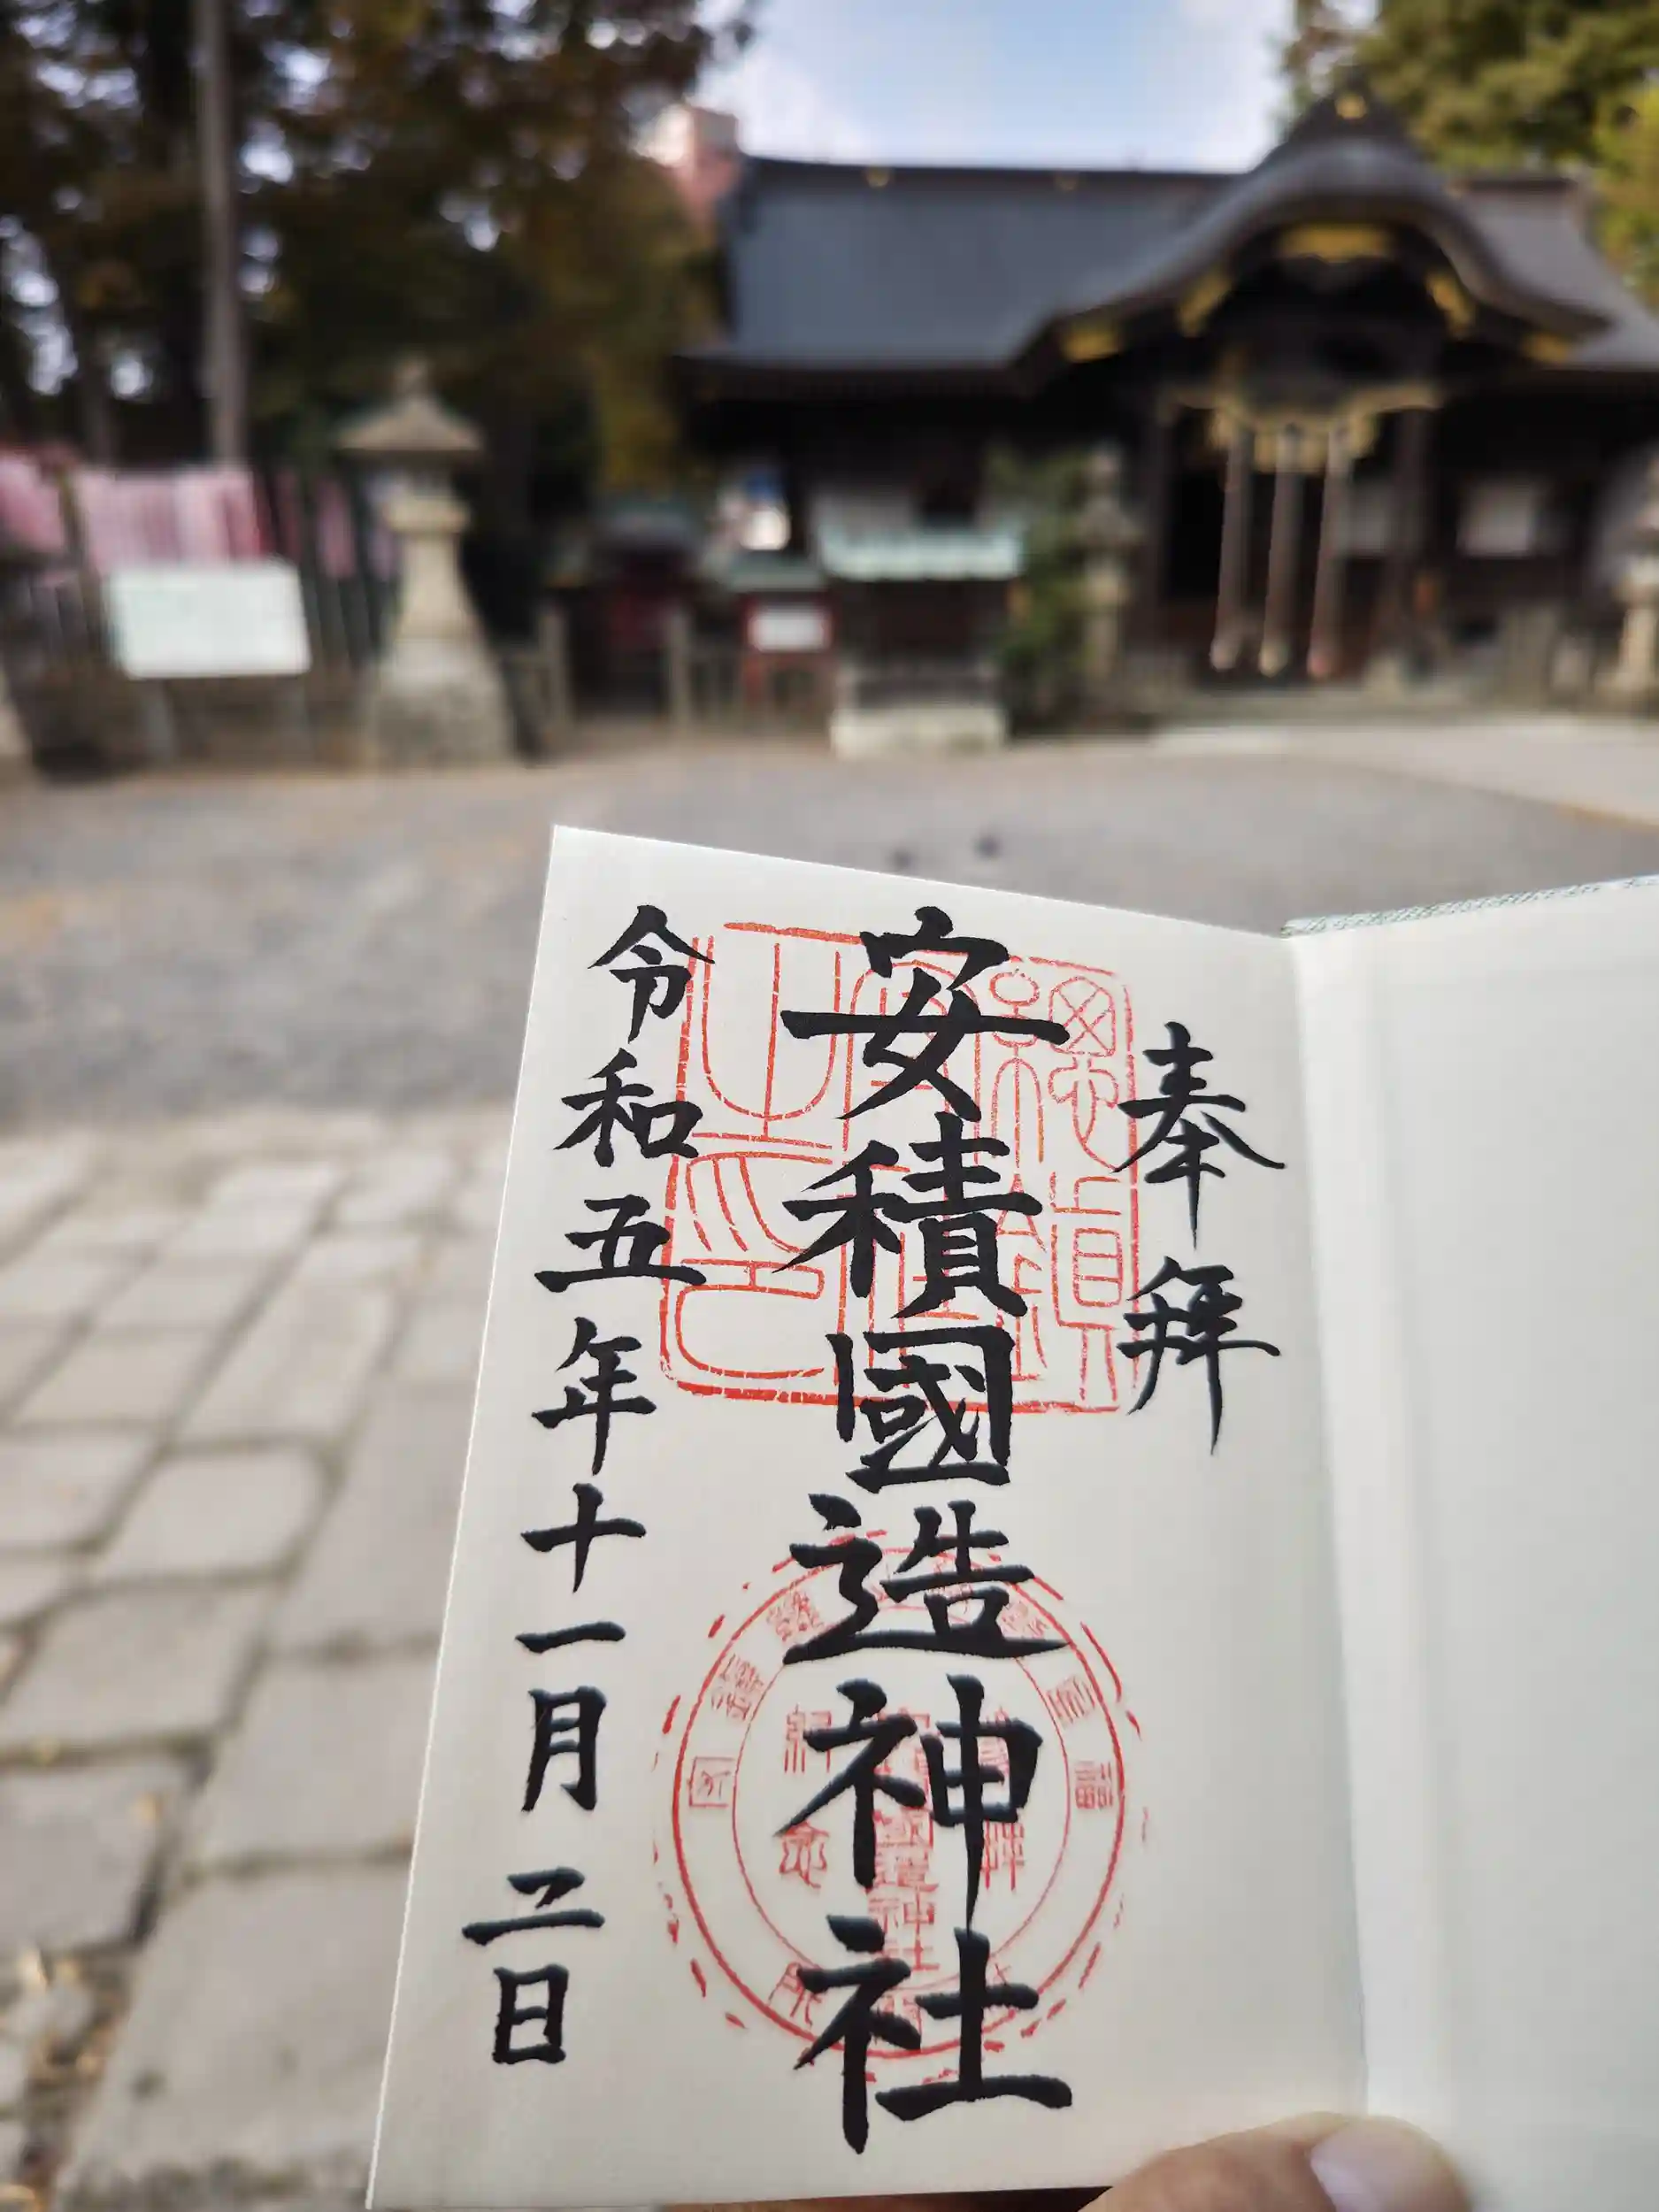 奉拜
安積國造神社
令和五年十一月二日